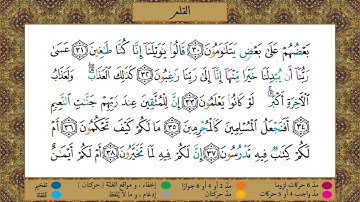 القلم
بَعۡضُهُمۡ عَلَىٰ بَعۡضٖ يَتَلَٰوَمُونَ ٣٠ قَالُواْ يَٰوَيۡلَنَآ إِنَّا كُنَّا طَٰغِينَ ٣١ عَسَىٰ
رَبُّنَآ أَن يُبۡدِلَنَا خَيۡرٗا مِّنۡهَآ إِنَّآ إِلَىٰ رَبِّنَا رَٰغِبُونَ ٣٢ كَذَٰلِكَ ٱلۡعَذَابُۖ وَلَعَذَابُ
ٱلۡأٓخِرَةِ أَكۡبَرُۚ لَوۡ كَانُواْ يَعۡلَمُونَ ٣٣ إِنَّ لِلۡمُتَّقِينَ عِندَ رَبِّهِمۡ جَنَّٰتِ ٱلنَّعِيمِ
٣٤ أَفَنَجۡعَلُ ٱلۡمُسۡلِمِينَ كَٱلۡمُجۡرِمِينَ ٣٥ مَا لَكُمۡ كَيۡفَ تَحۡكُمُونَ ٣٦ أَمۡ
لَكُمۡ كِتَٰبٞ فِيهِ تَدۡرُسُونَ ٣٧ إِنَّ لَكُمۡ فِيهِ لَمَا تَخَيَّرُونَ ٣٨ أَمۡ لَكُمۡ أَيۡمَٰنٌ
مد ٦ حركات لزوما مد ٢ أو ٤ أو ٦ جوازا إخفاء، و مواقع الغنة (حركتان) تفخيم
مد واجب ٤ أو ٥ حركات مد حركتان إدغام، و ما لا يلفظ قلقلة